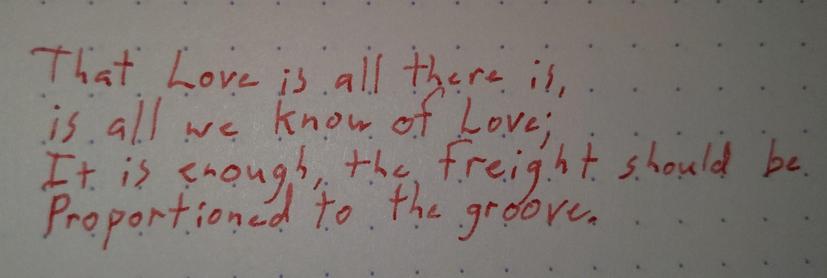 That Love is all there is,
is all we know of Love;
It is enough, the freight should be
Proportioned to the groove.